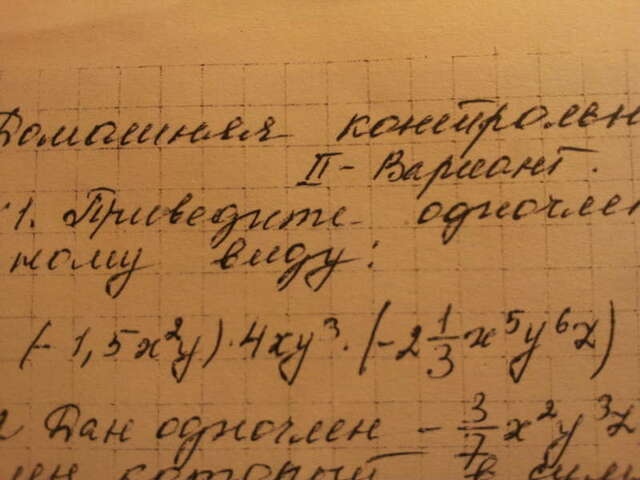 Домашняя контрольн
II - Вариант.
1. Приведите одночлен
ному виду:
(- 1,5x²y) · 4xy³ · (-2 1/3 x⁵y⁶z)
2 Дан одночлен - 3/7 x²y³z
лен который в сумм